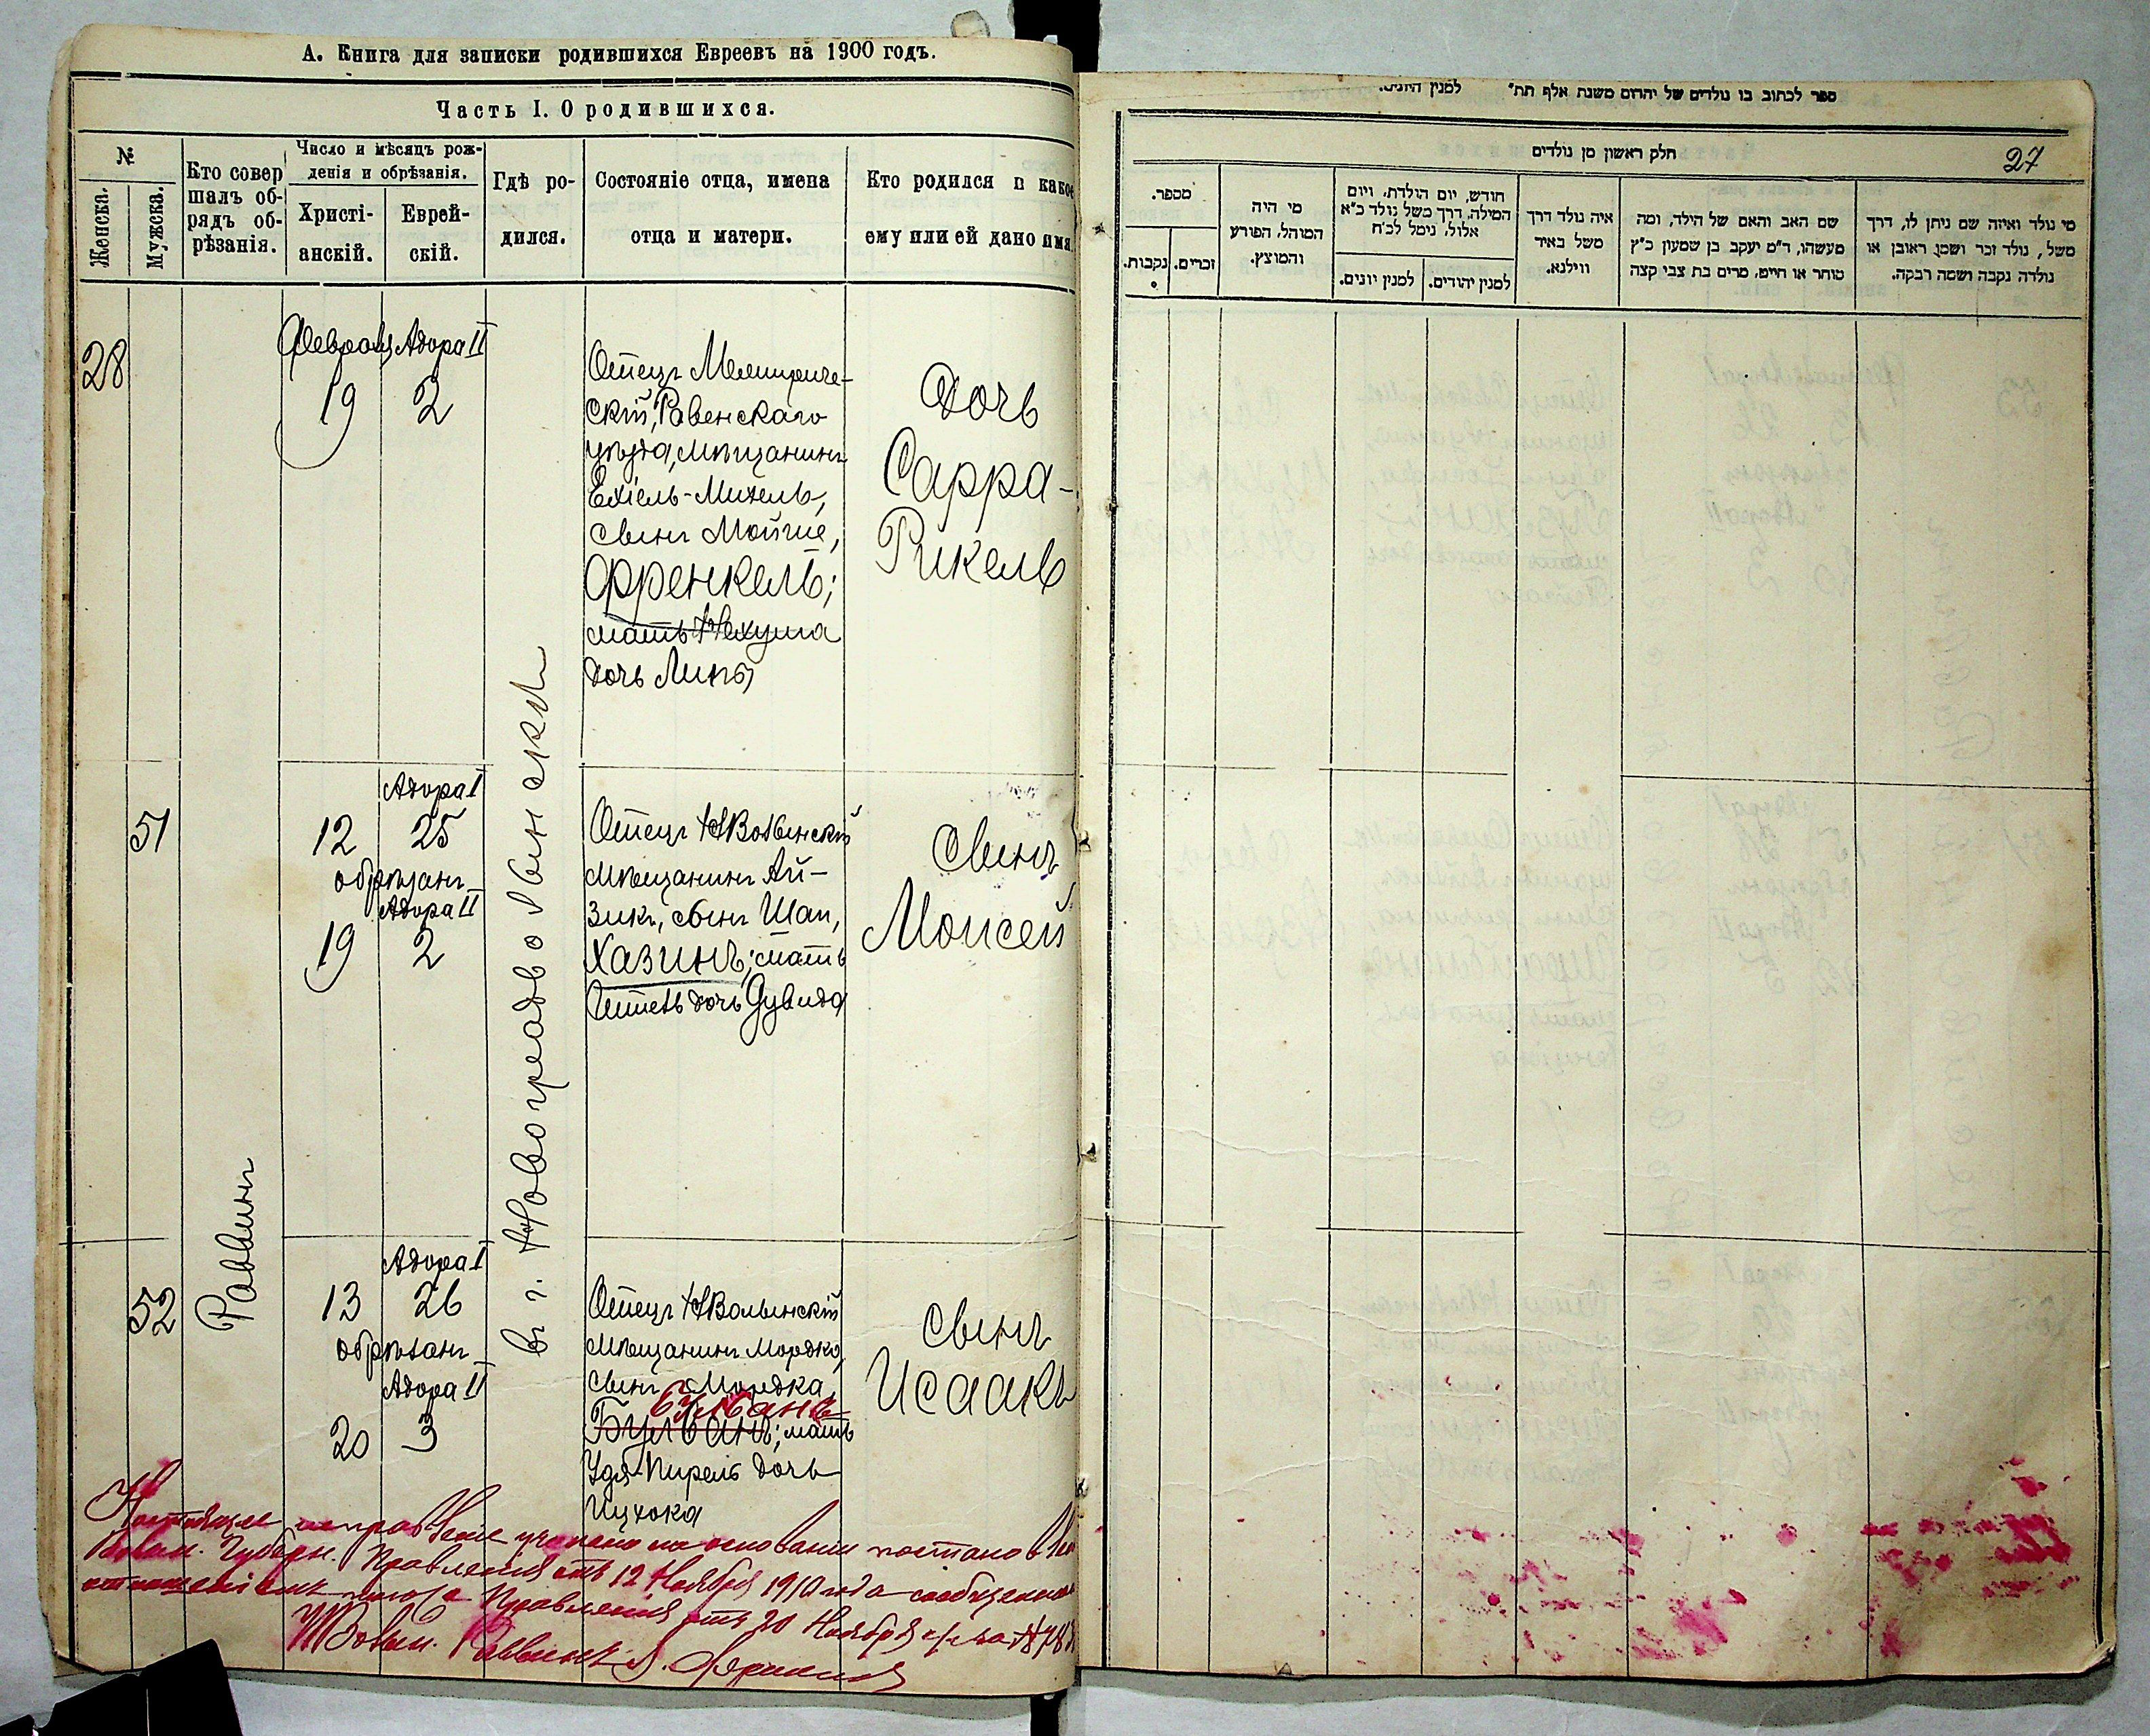 А. Книга для записки родившихся Евреевъ на 1900 годъ.
Часть I. О родившихся.
№
Женска.
Мужска.
Кто совер
шалъ об-
рядъ об-
рѣзанія.
Число и мѣсяцъ рож-
денія и обрѣзанія.
Христі-
анскій.
Еврей-
скій.
Гдѣ ро-
дился.
Состояніе отца, имена
отца и матери.
Кто родился и какое
ему или ей дано имя.
28
Адора II
19 2
Отецъ
скій, Равенскаго
уѣзда, мѣщанинъ
Ехіель-Михель,
сынъ Мойше,
Френкель;
мать Нехума
дочь Липы
Дочь
Сарра-
Рикель
51
Адора I
12 25
обрѣзанъ
Адора II
19 2
Отецъ НВолынскій
мѣщанинъ Ай-
зикъ, сынъ Шаи,
Хазинъ; мать
дочь Дувида
Сынъ
Моисей
52
Раввинъ
Адора I
13 26
обрѣзанъ
Адора II
20 3
въ г. Новоградволынскѣ
Отецъ НВолынскій
мѣщанинъ Мордко,
сынъ Мордка,
Бульванъ; мать
Удя-Перель дочь
Ицхока
Сынъ
Исаакъ
Настоящее исправленіе учинено на основаніи
Волын. Губерн. Правленія отъ 12 Ноября 1910 года
отношеніемъ того же Правленія отъ 20 Ноября
НВолын. Раввинъ
ספר לכתוב בו נולדים של יהדום משנת אלף תת" למנין היונים.
חלק ראשון מן נולדים
27
מספר.
נקבות.
זכרים.
מי היה
המוהל, הפורע
והמוצץ.
חודש, יום הולדת, ויום
המילה, דרך משל נולד כ"א
אלול, נימל לכ"ח
למנין יונים.
למנין יהודים.
איה נולד דרך
משל באיד
ווילנא.
שם האב והאם של הילד, ומה
מעשהו, ד"מ יעקב בן שמעון כ"ץ
סוחר או חייט, מרים בת צבי קצה
מי נולד ואיזה שם ניתן לו, דרך
משל, נולד זכר ושמו ראובן או
נולדה נקבה ושמה רבקה.